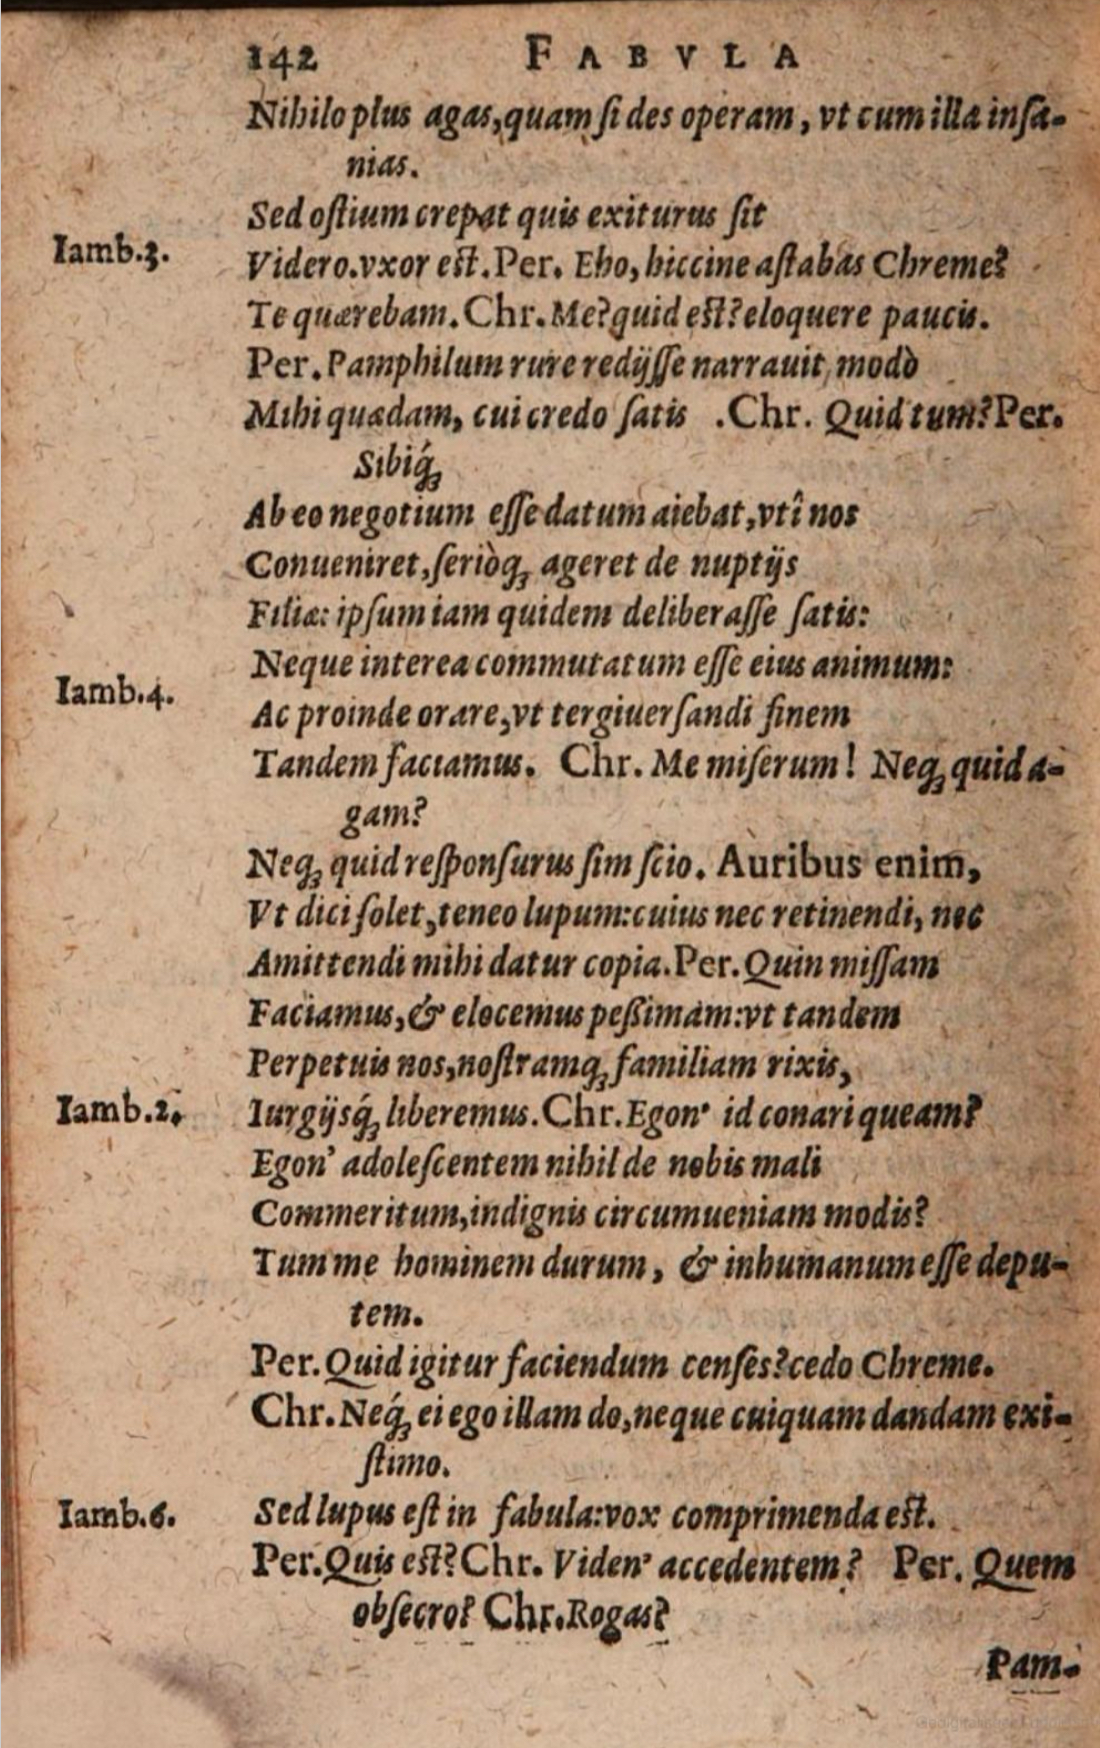 142 FABVLA
Nihilo plus agas, quam si des operam, vt cum illa insa-
nias.
Sed ostium crepat quis exiturus sit
Iamb.3.
Videro. vxor est. Per. Eho, hiccine astabas Chreme?
Te quærebam. Chr. Me? quid est? eloquere paucis.
Per. Pamphilum rure redijsse narrauit modò
Mihi quædam, cui credo satis . Chr. Quid tum? Per.
Sibiq́;
Ab eo negotium esse datum aiebat, vtî nos
Conueniret, seriòq; ageret de nuptijs
Filiæ: ipsum iam quidem deliberasse satis:
Neque interea commutatum esse eius animum:
Iamb.4.
Ac proinde orare, vt tergiuersandi finem
Tandem faciamus. Chr. Me miserum! Neq; quid a-
gam?
Neq; quid responsurus sim scio. Auribus enim,
Vt dici solet, teneo lupum: cuius nec retinendi, nec
Amittendi mihi datur copia. Per. Quin missam
Faciamus, & elocemus pessimam: vt tandem
Perpetuis nos, nostramq; familiam rixis,
Iamb.2.
Iurgijsq́; liberemus. Chr. Egon' id conari queam?
Egon' adolescentem nihil de nobis mali
Commeritum, indignis circumueniam modis?
Tum me hominem durum, & inhumanum esse depu-
tem.
Per. Quid igitur faciendum censes? cedo Chreme.
Chr. Neq́; ei ego illam do, neque cuiquam dandam exi-
stimo.
Iamb.6.
Sed lupus est in fabula: vox comprimenda est.
Per. Quis est? Chr. Viden' accedentem? Per. Quem
obsecro? Chr. Rogas?
Pam-